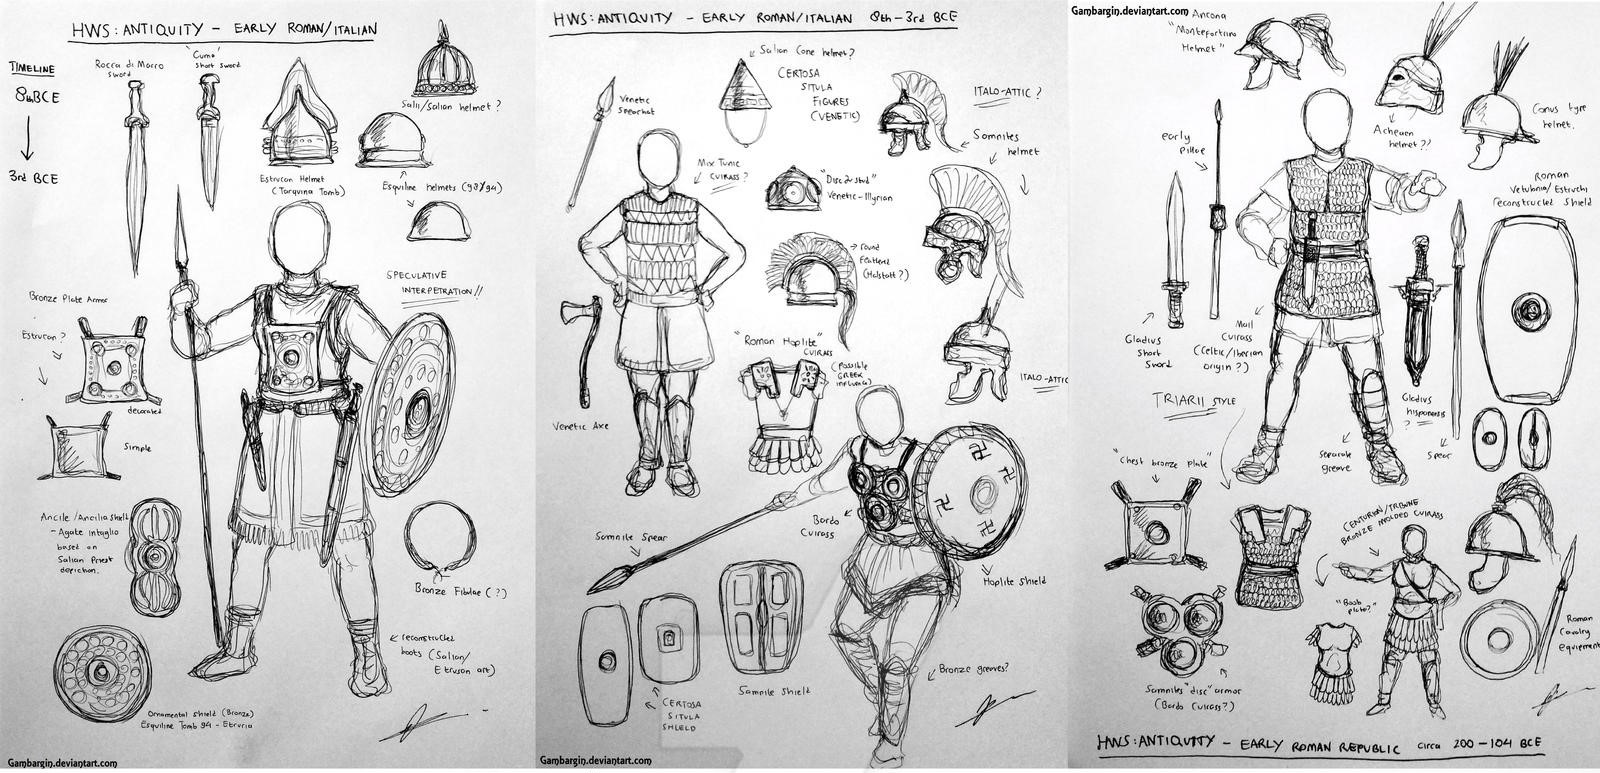 HWS: ANTIQUITY - EARLY ROMAN/ITALIAN
TIMELINE
8th BCE
3rd BCE
Rocca di Morro
Sword
"Cuma"
Short sword
Salii/Salian helmet?
Etruscan Helmet
(Tarquina Tomb)
Esquiline helmets (98/94)
SPECULATIVE
INTERPETRATION!!
Bronze Plate Armor
Etruscan?
decorated
Simple
Ancile/Ancilia shield
- Agate Intaglio
based on
Salian Priest
depiction.
Bronze Fibulae (?)
reconstructed
boots (Salian/
Etruscan art)
Ornamental shield (Bronze)
Esquiline Tomb 94 - Etruria
Gambargin.deviantart.com
HWS: ANTIQUITY - EARLY ROMAN/ITALIAN 8th-3rd BCE
Venetic
Spearhat
Salian Cone helmet?
CERTOSA
SITULA
FIGURES
(VENETIC)
ITALO-ATTIC?
Somnites
helmet
Mix Tunic
CUIRASS?
"Disc & stud"
Venetic-Illyrian
round
feathered
(Halstatt?)
"Roman Hoplite"
CUIRASS
(POSSIBLE
GREEK
INFLUENCE)
ITALO-ATTIC
Venetic Axe
Bordo
Cuirass
Somnite Spear
Hoplite Shield
CERTOSA
SITULA
SHIELD
Samnite Shield
Bronze greeves?
Gambargin.deviantart.com
Gambargin.deviantart.com
Ancona
"Montefortino
Helmet"
Acheaen
helmet??
Conus type
helmet.
early
pillae
Roman
Vetulonia/Etruscan
reconstructed shield
Gladius
Short
Sword
Mail
Cuirass
(Celtic/Iberian
origin?)
TRIARII STYLE
Gladius
hisponensis
?
Spear
Separate
greeve
"Chest bronze plate"
CENTURION/TRIBUNE
BRONZE MOLDED CUIRASS
"Boob
plate?"
Roman
Cavalry
equiement
Somnites "disc" armor
(Bordo Cuirass?)
HWS: ANTIQUITY - EARLY ROMAN REPUBLIC circa 200-104 BCE